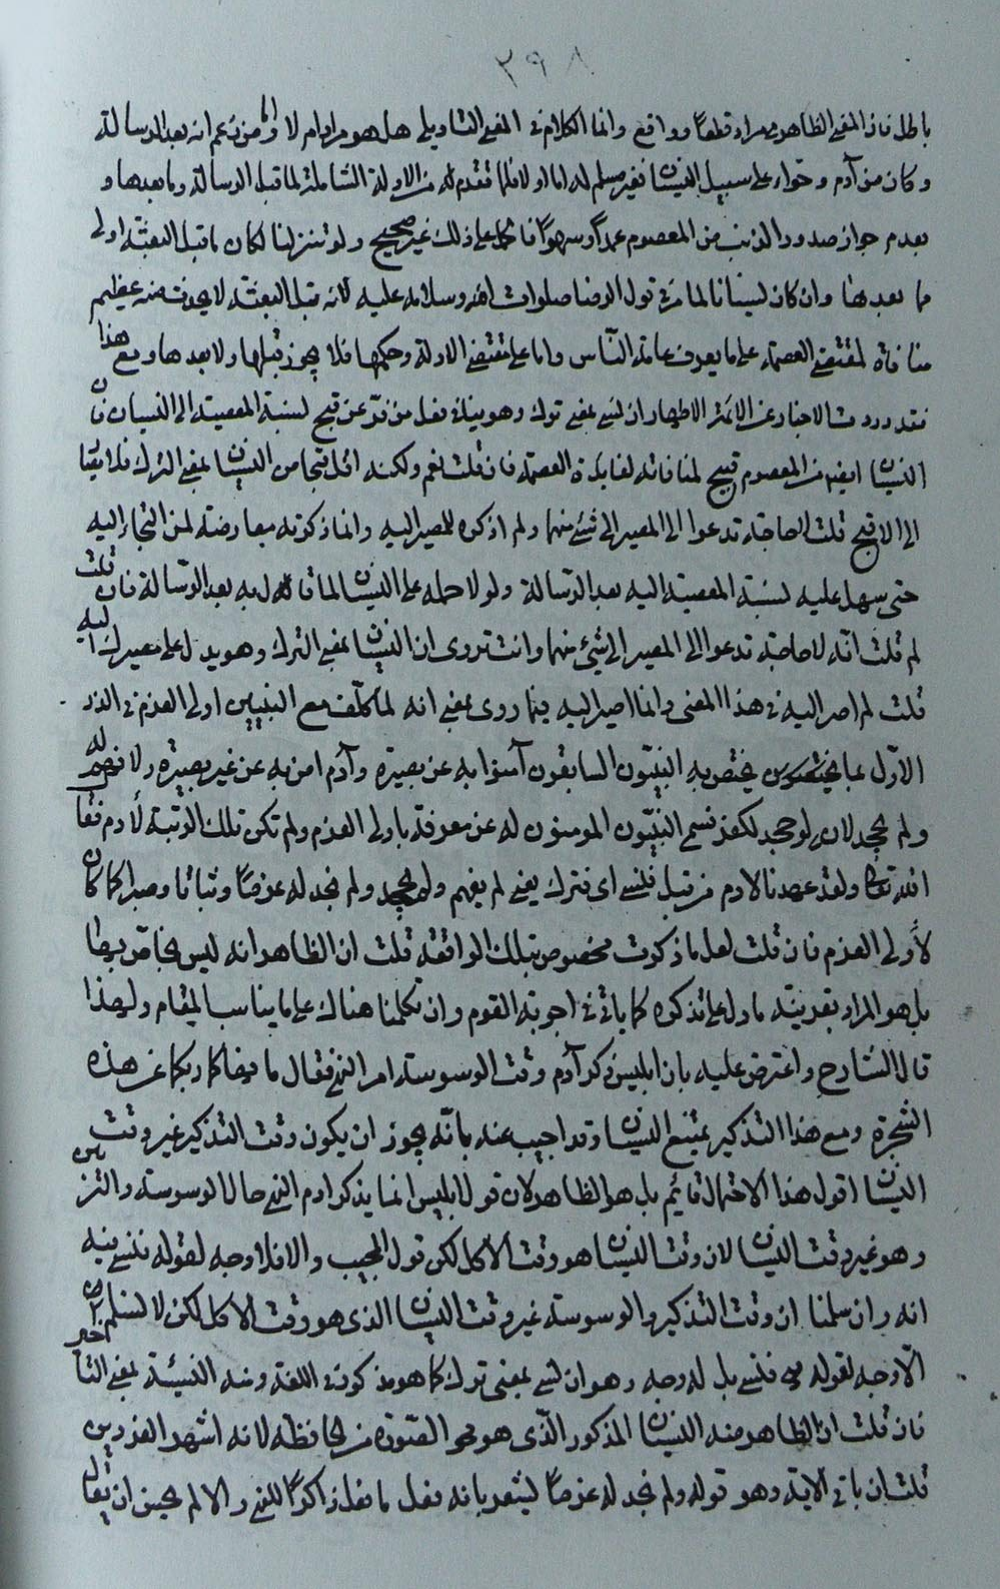 ٢٩٨
باطل فان المعنى الظاهرى مراد قطعاً وواقع وانما الكلام فى المعنى التاويلى هل هو مراد ام لا واما من زعم انه بعد الرسالة
وكان من آدم وحواء على سبيل النسيان فغير مسلم له اما اولا فلما تقدم له من الاولة الشاملة لما قبل الرسالة وما بعدها و
بعدم جواز صدور الذنب من المعصوم عمداً وسهواً فالحمل على ذلك غير صحيح ولو تنزلنا لكان ما قبل البعثة اولى
مما بعدها وان كان نسيانا لما مر فى قول الرضا صلوات الله وسلامه عليه لانه قبل البعثة لا يحدث منه عظيم
منافاة لمقتضى العصمة على ما يعرف عامة الناس واما على مقتضى الاولة وحكمها فلا يجوز قبلها ولا بعدها ومع هذا
فقد وردت الاخبار عن الائمة الاطهار ان نسى بمعنى ترك وهو ينافى فعل من فرّ عن قبح نسبة المعصية الى النسيان فان
النسيان ايضا من المعصوم قبيح لمنافاته لفائدة العصمة فان قلت نعم ولكنه اقل قبحا من النسيان بمعنى الترك فلا يصار
الى الاقبح قلت لا حاجة تدعوا الى المصير الى شىء منهما ولم اذكره للمصير اليه وانما ذكرته معارضة لمن التجأ اليه
حتى سهل عليه نسبة المعصية اليه بعد الرسالة ولولا حمله على النسيان لما قال به بعد الرسالة فان قلت
لم قلت انه لا حاجة تدعوا الى المصير الى شىء منهما وانت تروى ان النسيان بمعنى الترك وهو يدل على مصيرك اليه
قلت لم اصر اليه فى هذا المعنى وانما اصير اليه فيما روى بمعنى انه لما كلف مع النبيين اولى العزم فى الذر
الاول بما يختص به النبيون السابقون آمنوا به عن بصيرة وآدم امن به عن غير بصيرة ولا
ولم يجحد لانه لو جحد لكفر فسمى النبيون المومنون له عن معرفة باولى العزم ولم تكن تلك الرتبة لآدم فقال
الله تعالى ولقد عهدنا الى ادم من قبل فنسى اى فترك يعنى لم يفهم ولم يجحد ولم نجد له عزماً وثباتا وصبرا كما كان
لأولى العزم فان قلت لعل ما ذكرت مخصوص بتلك الواقعة قلت ان الظاهر انه ليس بخاص بها
بل هو المراد بقرينة ما دل على تذكره كما ياتى فى اجوبة القوم وان تكلمنا هناك على ما يناسب المقام ولهذا
قال الشارح واعترض عليه بان ابليس ذكر آدم وقت الوسوسة امر النهى فقال ما نهاكما ربكما عن هذه
الشجرة ومع هذا التذكير يمتنع النسيان وقد اجيب عنه بانّه يجوز ان يكون وقت التذكير غير وقت
النسيان اقول هذا الاحتمال قائم بل هو الظاهر لان قول ابليس انما يذكر ادم النهى حال الوسوسة والتزيين
وهو غير وقت النسيان لان وقت النسيان هو وقت الاكل لكن قول المجيب والا فلا وجه لقوله فنسى فيه
انه وان سلمنا ان وقت التذكير والوسوسة غير وقت النسيان الذى هو وقت الاكل لكن لا نسلم ان
الّا وجه لقوله فنسى بل له وجه وهو ان نسى بمعنى ترك كما هو مذكور فى اللغة ومنه النسيئة بمعنى التاخير
فان قلت ان الظاهر منه النسيان المذكور الّذى هو محو الصّورة من الحافظة لانه اشهر الفردين
قلت ان باقى الآية وهو قوله ولم نجد له عزماً ليشعر بانه فعل ما فعل ذاكراً للنهى والا لم يحسن ان يقال